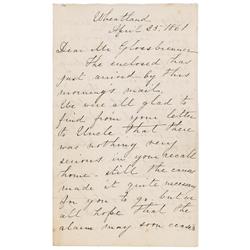 Wheatland
April 23. 1861
Dear Mr Glossbrenner
The enclosed has
just arrived by this
mornings mail.
We were all glad to
find from your letter
to Uncle that there
was nothing very
serious in your recall
home - still the cause
made it quite necessary
for you to go, but we
all hope that the
alarm may soon cease